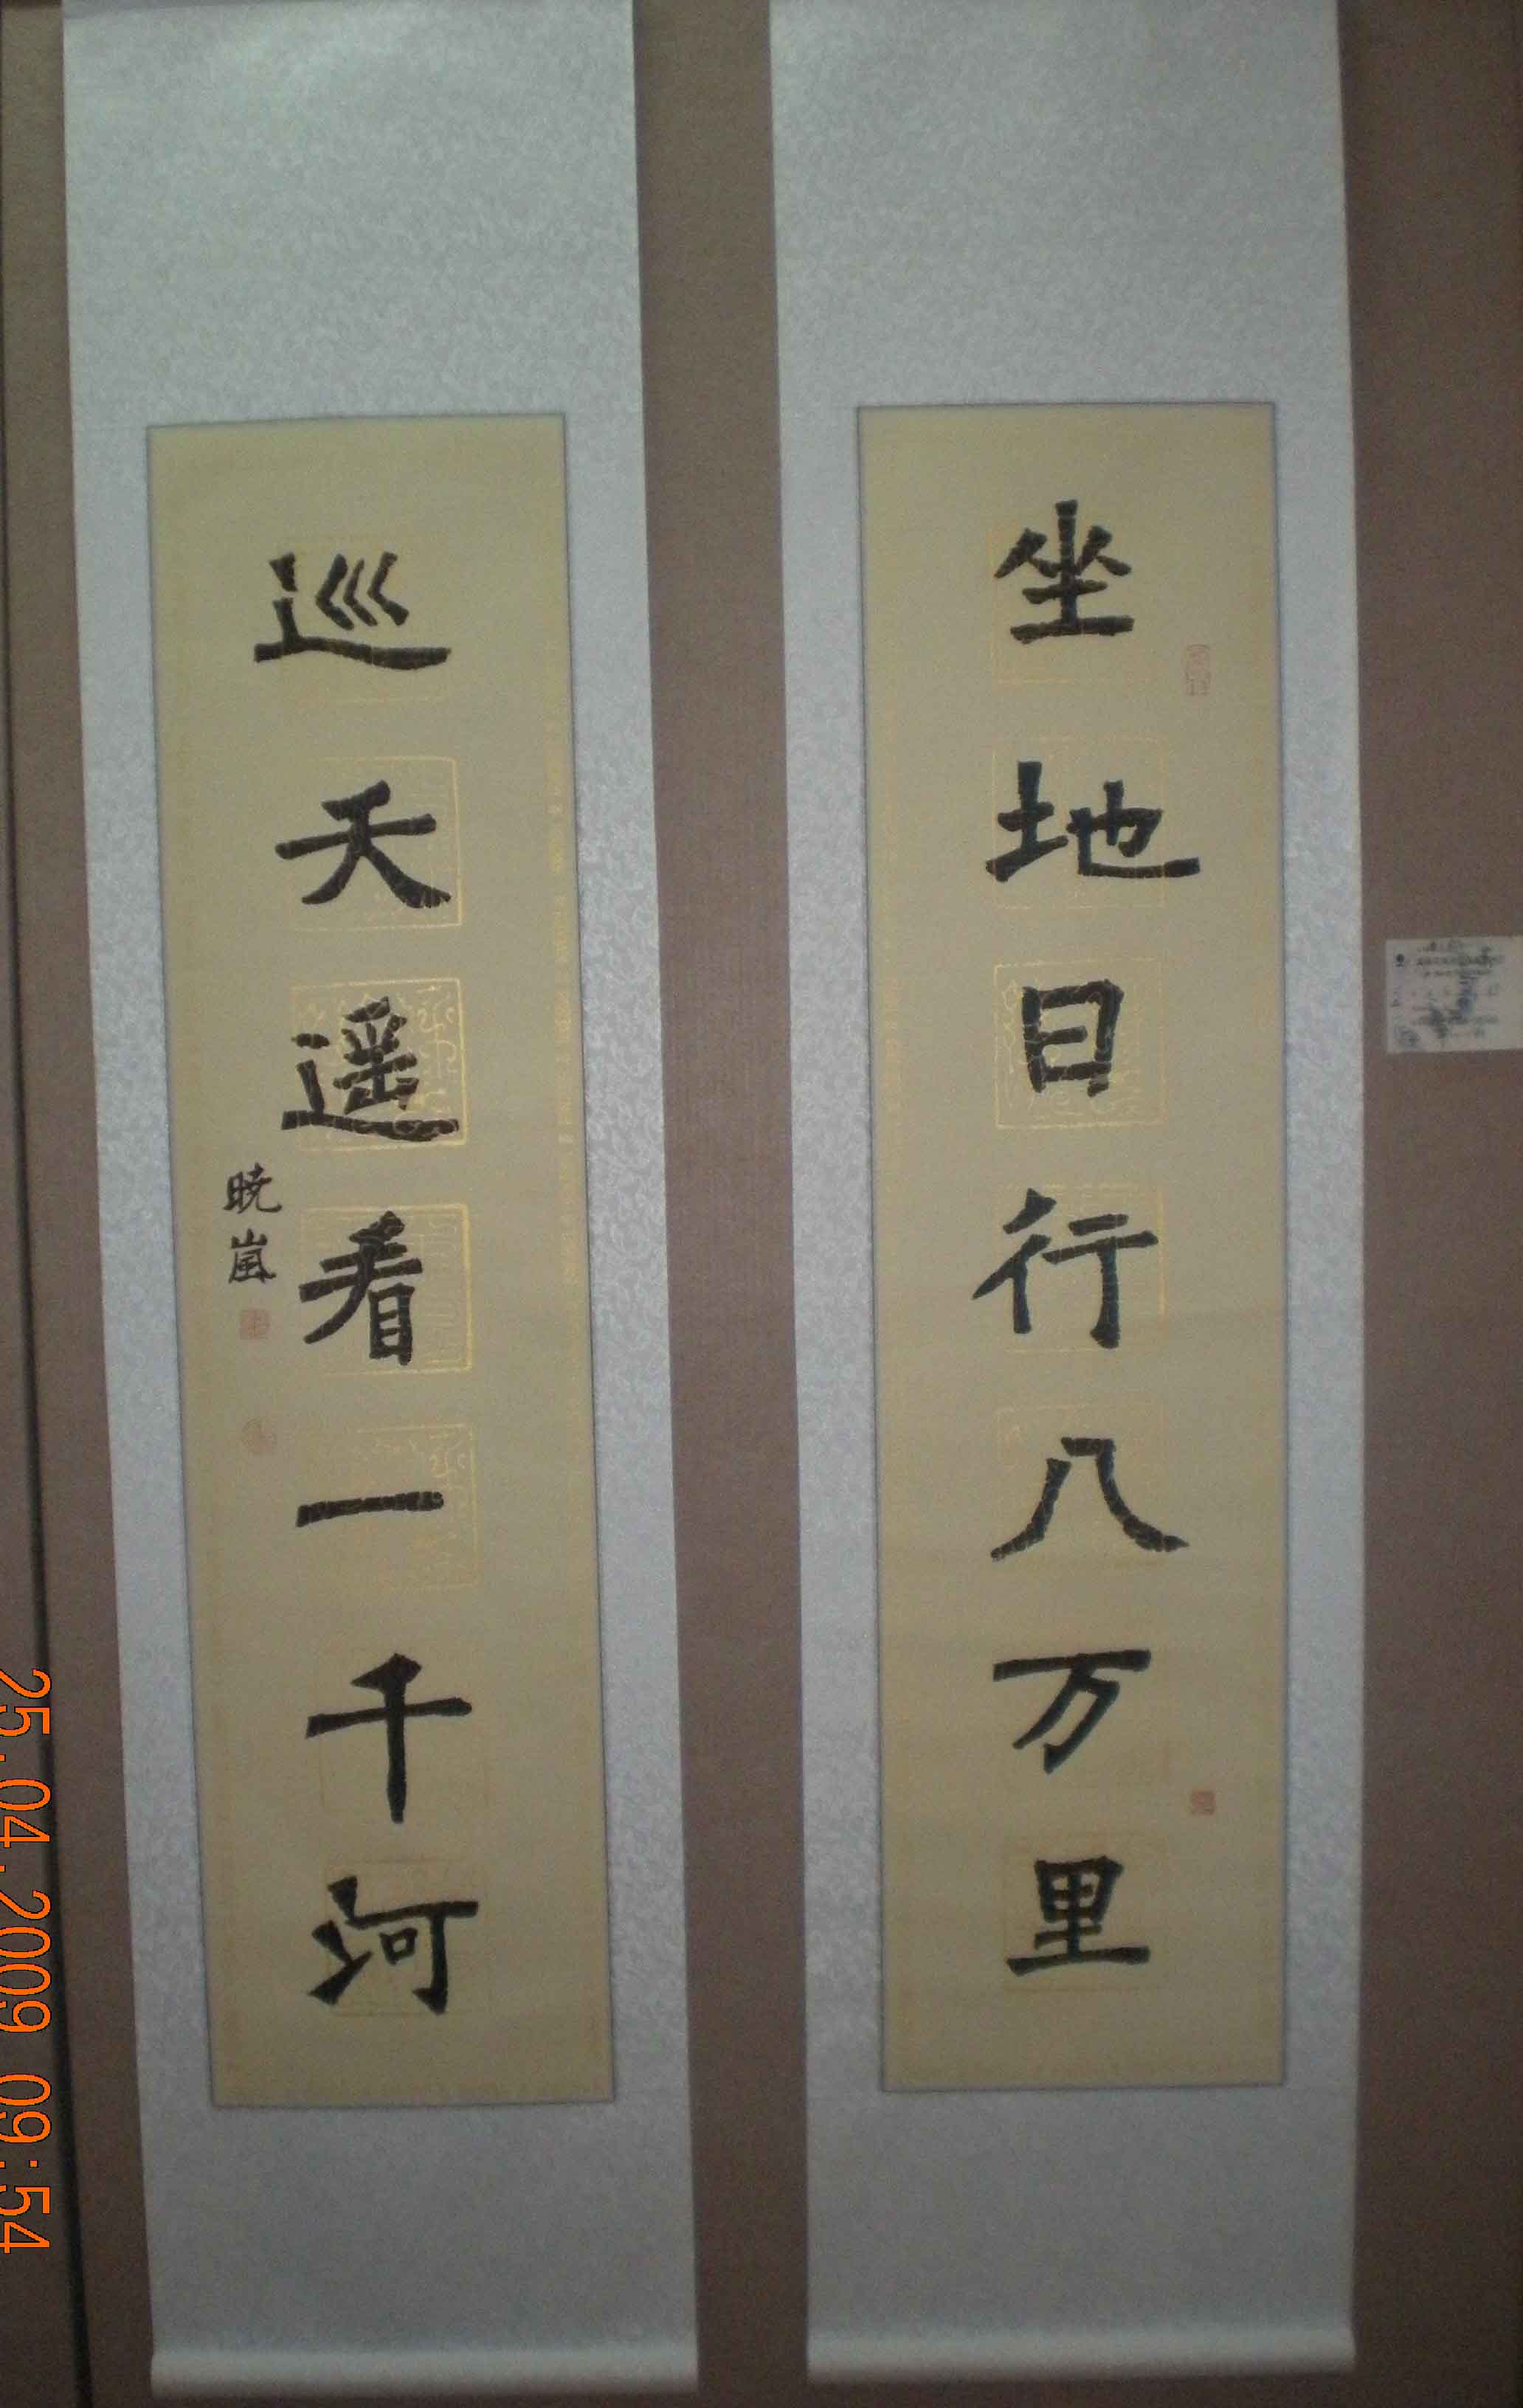 坐地日行八万里
巡天遥看一千河
晓岚
25.04.2009 09:54